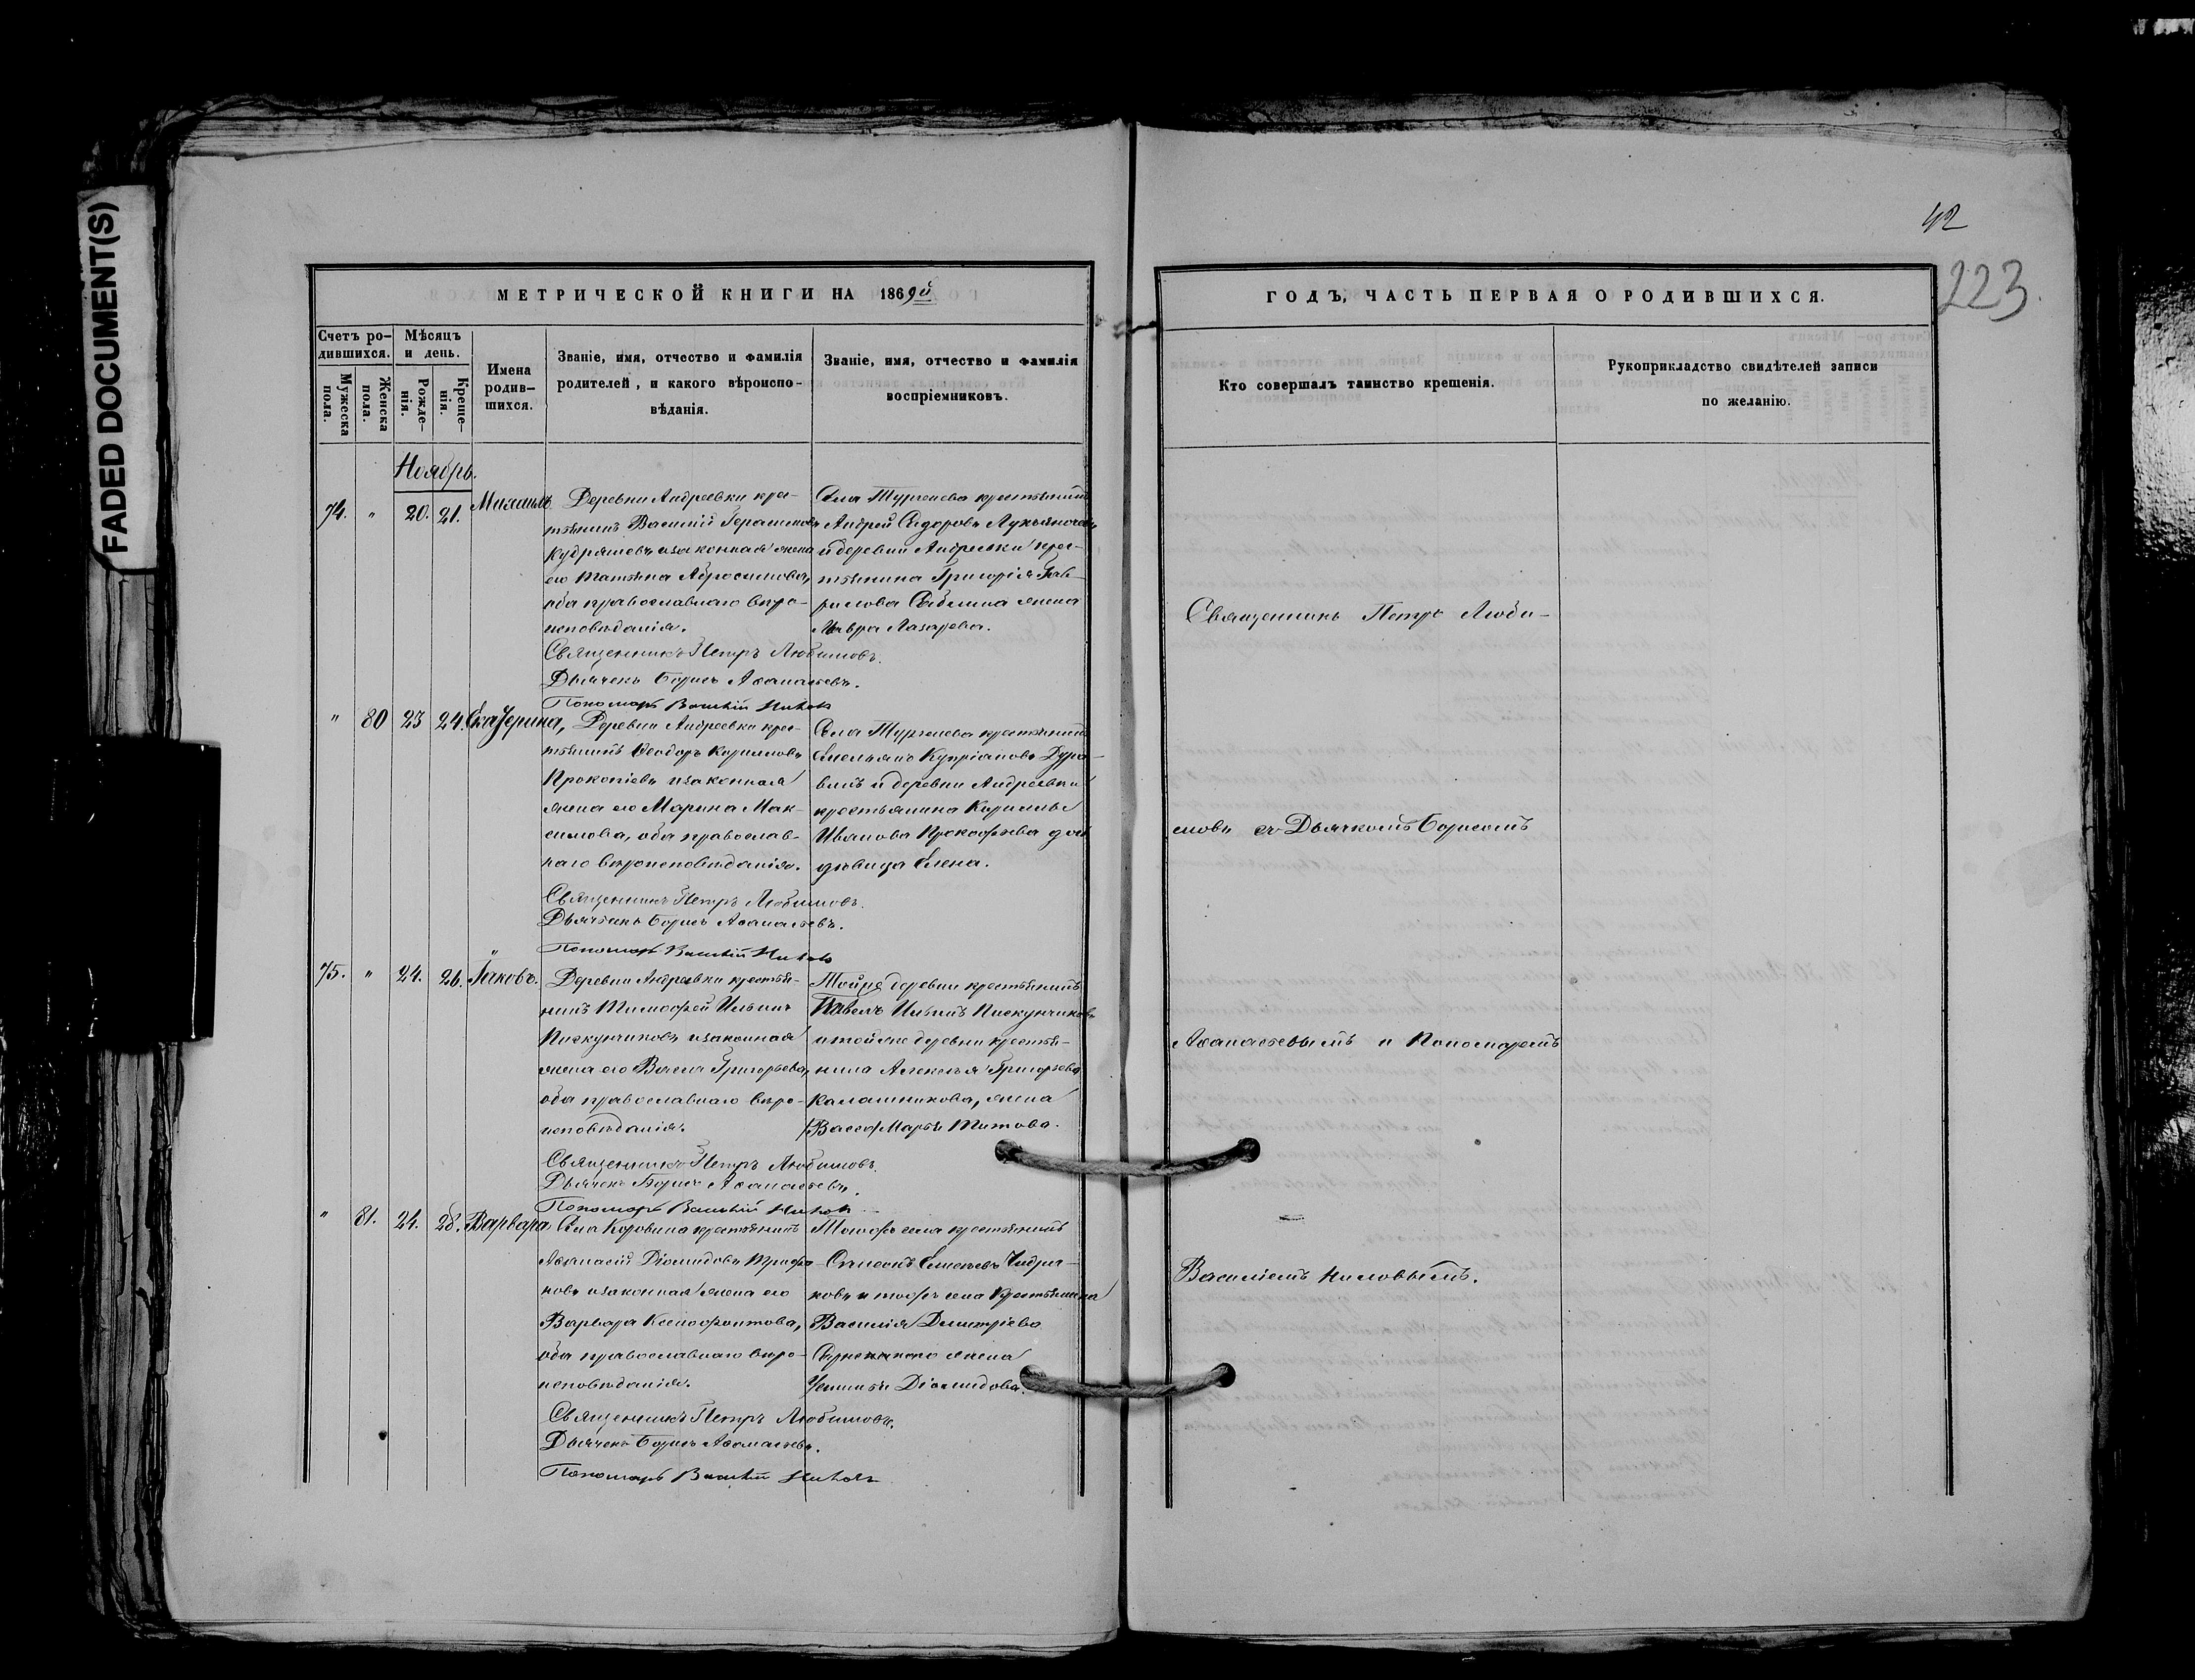 FADED DOCUMENT(S)
42
223
МЕТРИЧЕСКОЙ КНИГИ НА 1869й
Счетъ родившихся.
Мѣсяцъ и день.
Мужеска пола.
Женска пола.
Рожденія.
Крещенія.
Имена родившихся.
Званіе, имя, отчество и фамилія
родителей, и какого вѣроиспо-
вѣданія.
Званіе, имя, отчество и фамилія
воспріемниковъ.
Ноябрь.
74. " 20. 21. Михаилъ
Деревни Андреевки кре-
стьянинъ Василій Герасимовъ
Кудряшевъ и законная жена
его Татьяна Абросимова,
оба православнаго вѣро-
исповѣданія.
Села Тургенева крестьянинъ
Андрей Сидоровъ
и деревни Андреевки крес-
тьянина Григорія Гав-
рилова жена
Мавра Лазарева.
Священникъ Петръ Любимовъ.
Дьячекъ Борисъ Аѳанасьевъ.
Пономарь Василій
" 80 23 24. Екатерина,
Деревни Андреевки крес-
тьянинъ Ѳеодоръ Кириловъ
Прокопіевъ и законная
жена его Марина Мак-
симова, оба православ-
наго вѣроисповѣданія.
Села Тургенева крестьянинъ
Емельянъ Купріановъ
и деревни Андреевки
крестьянина Кириллы
Иванова Прокофьева дочь
дѣвица Елена.
Священникъ Петръ Любимовъ.
Дьячекъ Борисъ Аѳанасьевъ.
Пономарь Василій
75. " 24. 26. Іаковъ.
Деревни Андреевки крестья-
нинъ Тимофей Ильинъ
Пискунчиковъ и законная
жена его Григорьева,
оба православнаго вѣро-
исповѣданія.
Тойже деревни крестьянинъ
Павелъ Ильинъ Пискунчиковъ
и тойже деревни крестья-
нина Алексѣя Григорьева
Калашникова, жена
Марья Титова.
Священникъ Петръ Любимовъ.
Дьячекъ Борисъ Аѳанасьевъ.
Пономарь Василій
" 81. 24. 28. Варвара
Села Коровина крестьянинъ
Аѳанасій Діомидовъ Трофи-
мовъ и законная жена его
Варвара Ксенофонтова,
оба православнаго вѣро-
исповѣданія.
Тогожъ села крестьянинъ
и тогожъ села крестьянина
Василія Дмитріева
жена
Устинья Діомидова.
Священникъ Петръ Любимовъ.
Дьячекъ Борисъ Аѳанасьевъ.
Пономарь Василій
ГОДЪ, ЧАСТЬ ПЕРВАЯ О РОДИВШИХСЯ.
Кто совершалъ таинство крещенія.
Рукоприкладство свидѣтелей записи
по желанію.
Священникъ Петръ Люби-
мовъ съ Дьячкомъ Борисомъ
Аѳанасьевымъ и Пономаремъ
Василіемъ Ниловымъ.